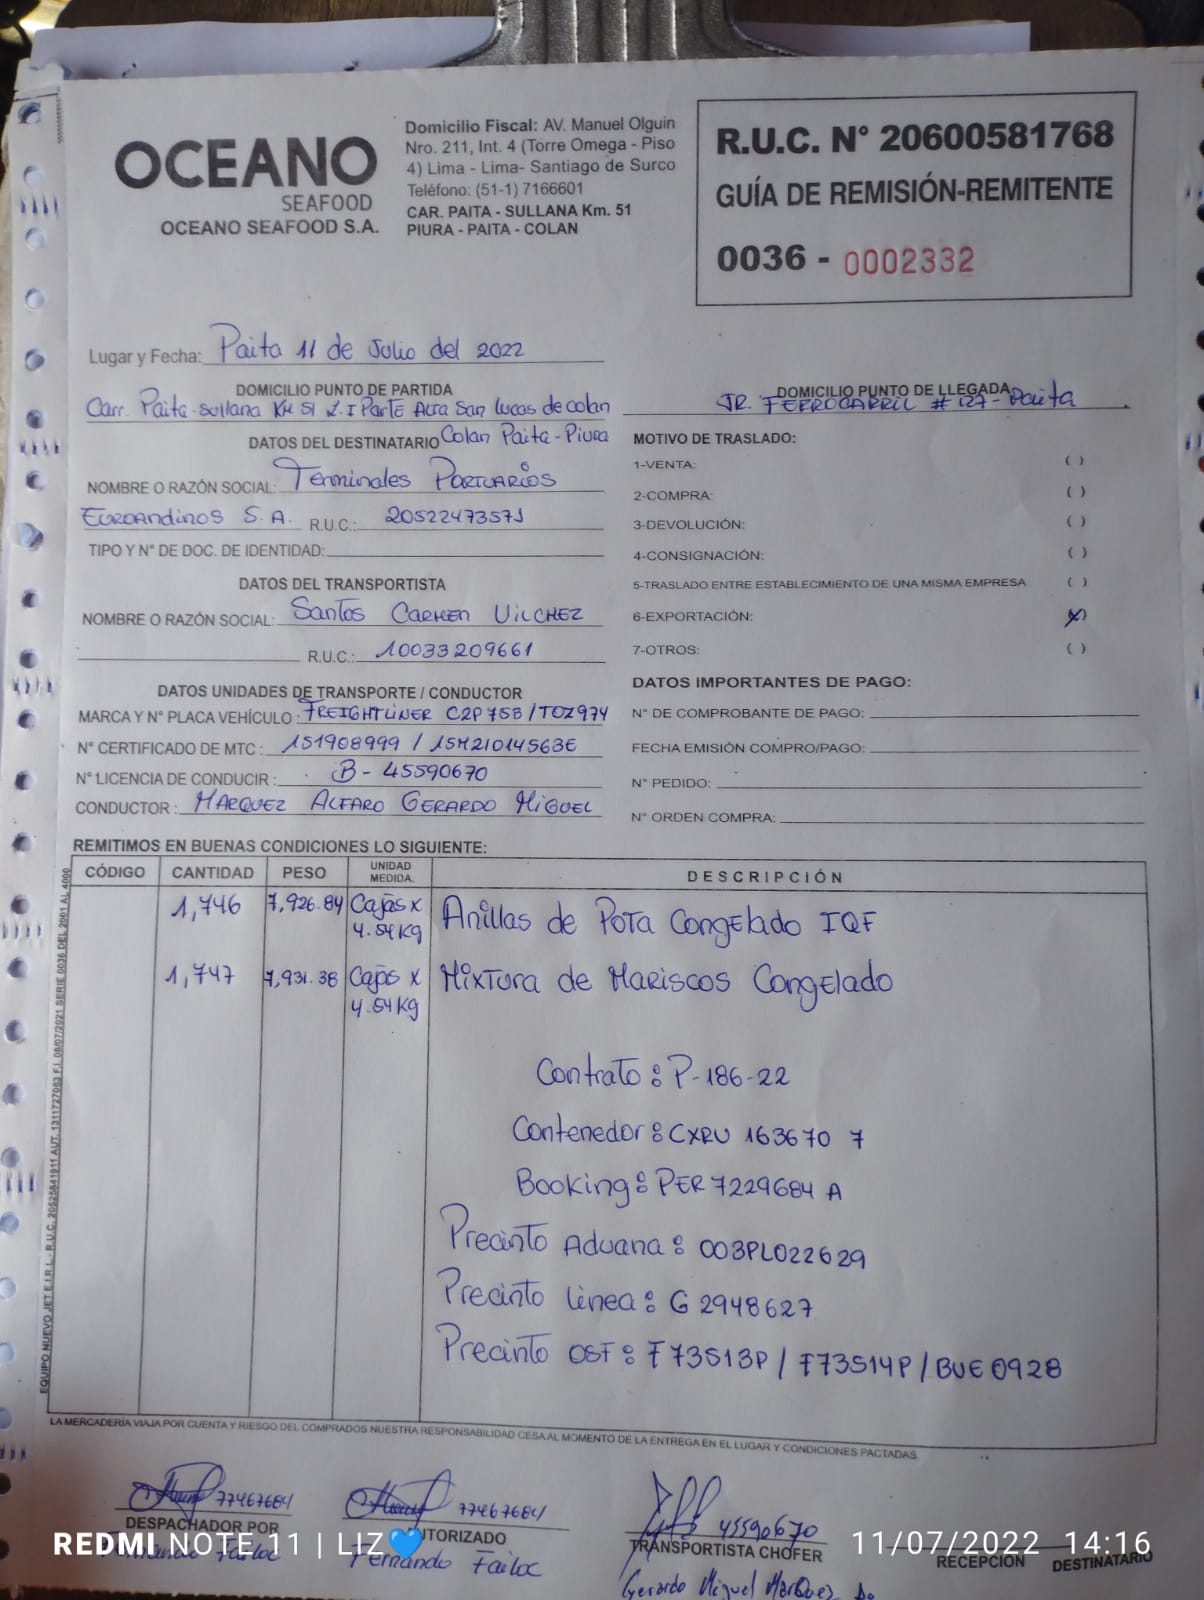 OCEANO
SEAFOOD
OCEANO SEAFOOD S.A.
Domicilio Fiscal: AV. Manuel Olguin
Nro. 211, Int. 4 (Torre Omega - Piso
4) Lima - Lima- Santiago de Surco
Teléfono: (51-1) 7166601
CAR. PAITA - SULLANA Km. 51
PIURA - PAITA - COLAN
R.U.C. N° 20600581768
GUÍA DE REMISIÓN-REMITENTE
0036 - 0002332
Lugar y Fecha: Paita 11 de Julio del 2022
DOMICILIO PUNTO DE PARTIDA
Carr. Paita-Sullana KM 51 Z.I Parte Alta San Lucas de colan
Colan Paita-Piura
DOMICILIO PUNTO DE LLEGADA
JR. FERROCARRIL # 127-Paita
DATOS DEL DESTINATARIO
NOMBRE O RAZÓN SOCIAL: Terminales Portuarios
Euroandinos S.A. R.U.C.: 20522473571
TIPO Y N° DE DOC. DE IDENTIDAD:
DATOS DEL TRANSPORTISTA
NOMBRE O RAZÓN SOCIAL: Santos Carmen Vilchez
R.U.C.: 10033209661
DATOS UNIDADES DE TRANSPORTE / CONDUCTOR
MARCA Y N° PLACA VEHÍCULO: FREIGHTLINER C2P758/T0Z974
N° CERTIFICADO DE MTC: 151908999 / 15M21014563E
N° LICENCIA DE CONDUCIR: B-45590670
CONDUCTOR: MARQUEZ ALFARO GERARDO MIGUEL
MOTIVO DE TRASLADO:
1-VENTA: ( )
2-COMPRA: ( )
3-DEVOLUCIÓN: ( )
4-CONSIGNACIÓN: ( )
5-TRASLADO ENTRE ESTABLECIMIENTO DE UNA MISMA EMPRESA ( )
6-EXPORTACIÓN: (X)
7-OTROS: ( )
DATOS IMPORTANTES DE PAGO:
N° DE COMPROBANTE DE PAGO:
FECHA EMISIÓN COMPRO/PAGO:
N° PEDIDO:
N° ORDEN COMPRA:
REMITIMOS EN BUENAS CONDICIONES LO SIGUIENTE:
CÓDIGO CANTIDAD PESO UNIDAD MEDIDA. DESCRIPCIÓN
1,746 7,926.84 Cajas x 4.54Kg Anillas de Pota Congelado IQF
1,747 7,931.38 Cajas x 4.54Kg Mixtura de Mariscos Congelado
Contrato: P-186-22
Contenedor: CXRU 163670 7
Booking: PER 7229684 A
Precinto Aduana: 003PL022629
Precinto Linea: G 2948627
Precinto OSF: F73513P / F73514P / BUE 0928
EQUIPO NUEVO JET E.I.R.L - R.U.C. 20525841911 AUT. 1311727083 F.I. 08/07/2021 SERIE 0036 DEL 2001 AL 4000
LA MERCADERÍA VIAJA POR CUENTA Y RIESGO DEL COMPRADOS NUESTRA RESPONSABILIDAD CESA AL MOMENTO DE LA ENTREGA EN EL LUGAR Y CONDICIONES PACTADAS.
77467684
DESPACHADOR POR
77467684
AUTORIZADO
Fernando Failoc
45590670
TRANSPORTISTA CHOFER
Gerardo Miguel Marquez
RECEPCIÓN DESTINATARIO
REDMI NOTE 11 | LIZ💙
11/07/2022 14:16